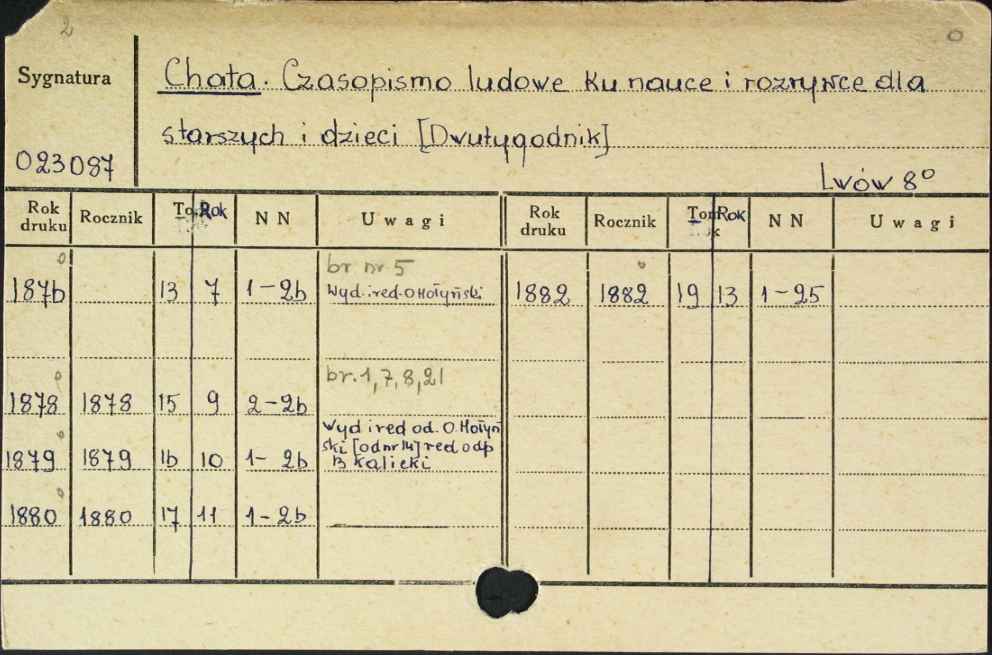 2
Sygnatura
Chata. Czasopismo ludowe ku nauce i rozrywce dla
starszych i dzieci [Dwutygodnik]
023087
Lwów 8°
Rok druku Rocznik Rok NN Uwagi Rok druku Rocznik Rok NN Uwagi
br nr 5
1876 13 7 1-26 Wyd. i red. O Hołyński 1882 1882 19 13 1-25
br. 1,7,8,21
1878 1878 15 9 2-26
Wyd i red od. O. Hołyń
ski [od nr 14] red odp
1879 1879 16 10 1-26 B Kalicki
1880 1880 17 11 1-26